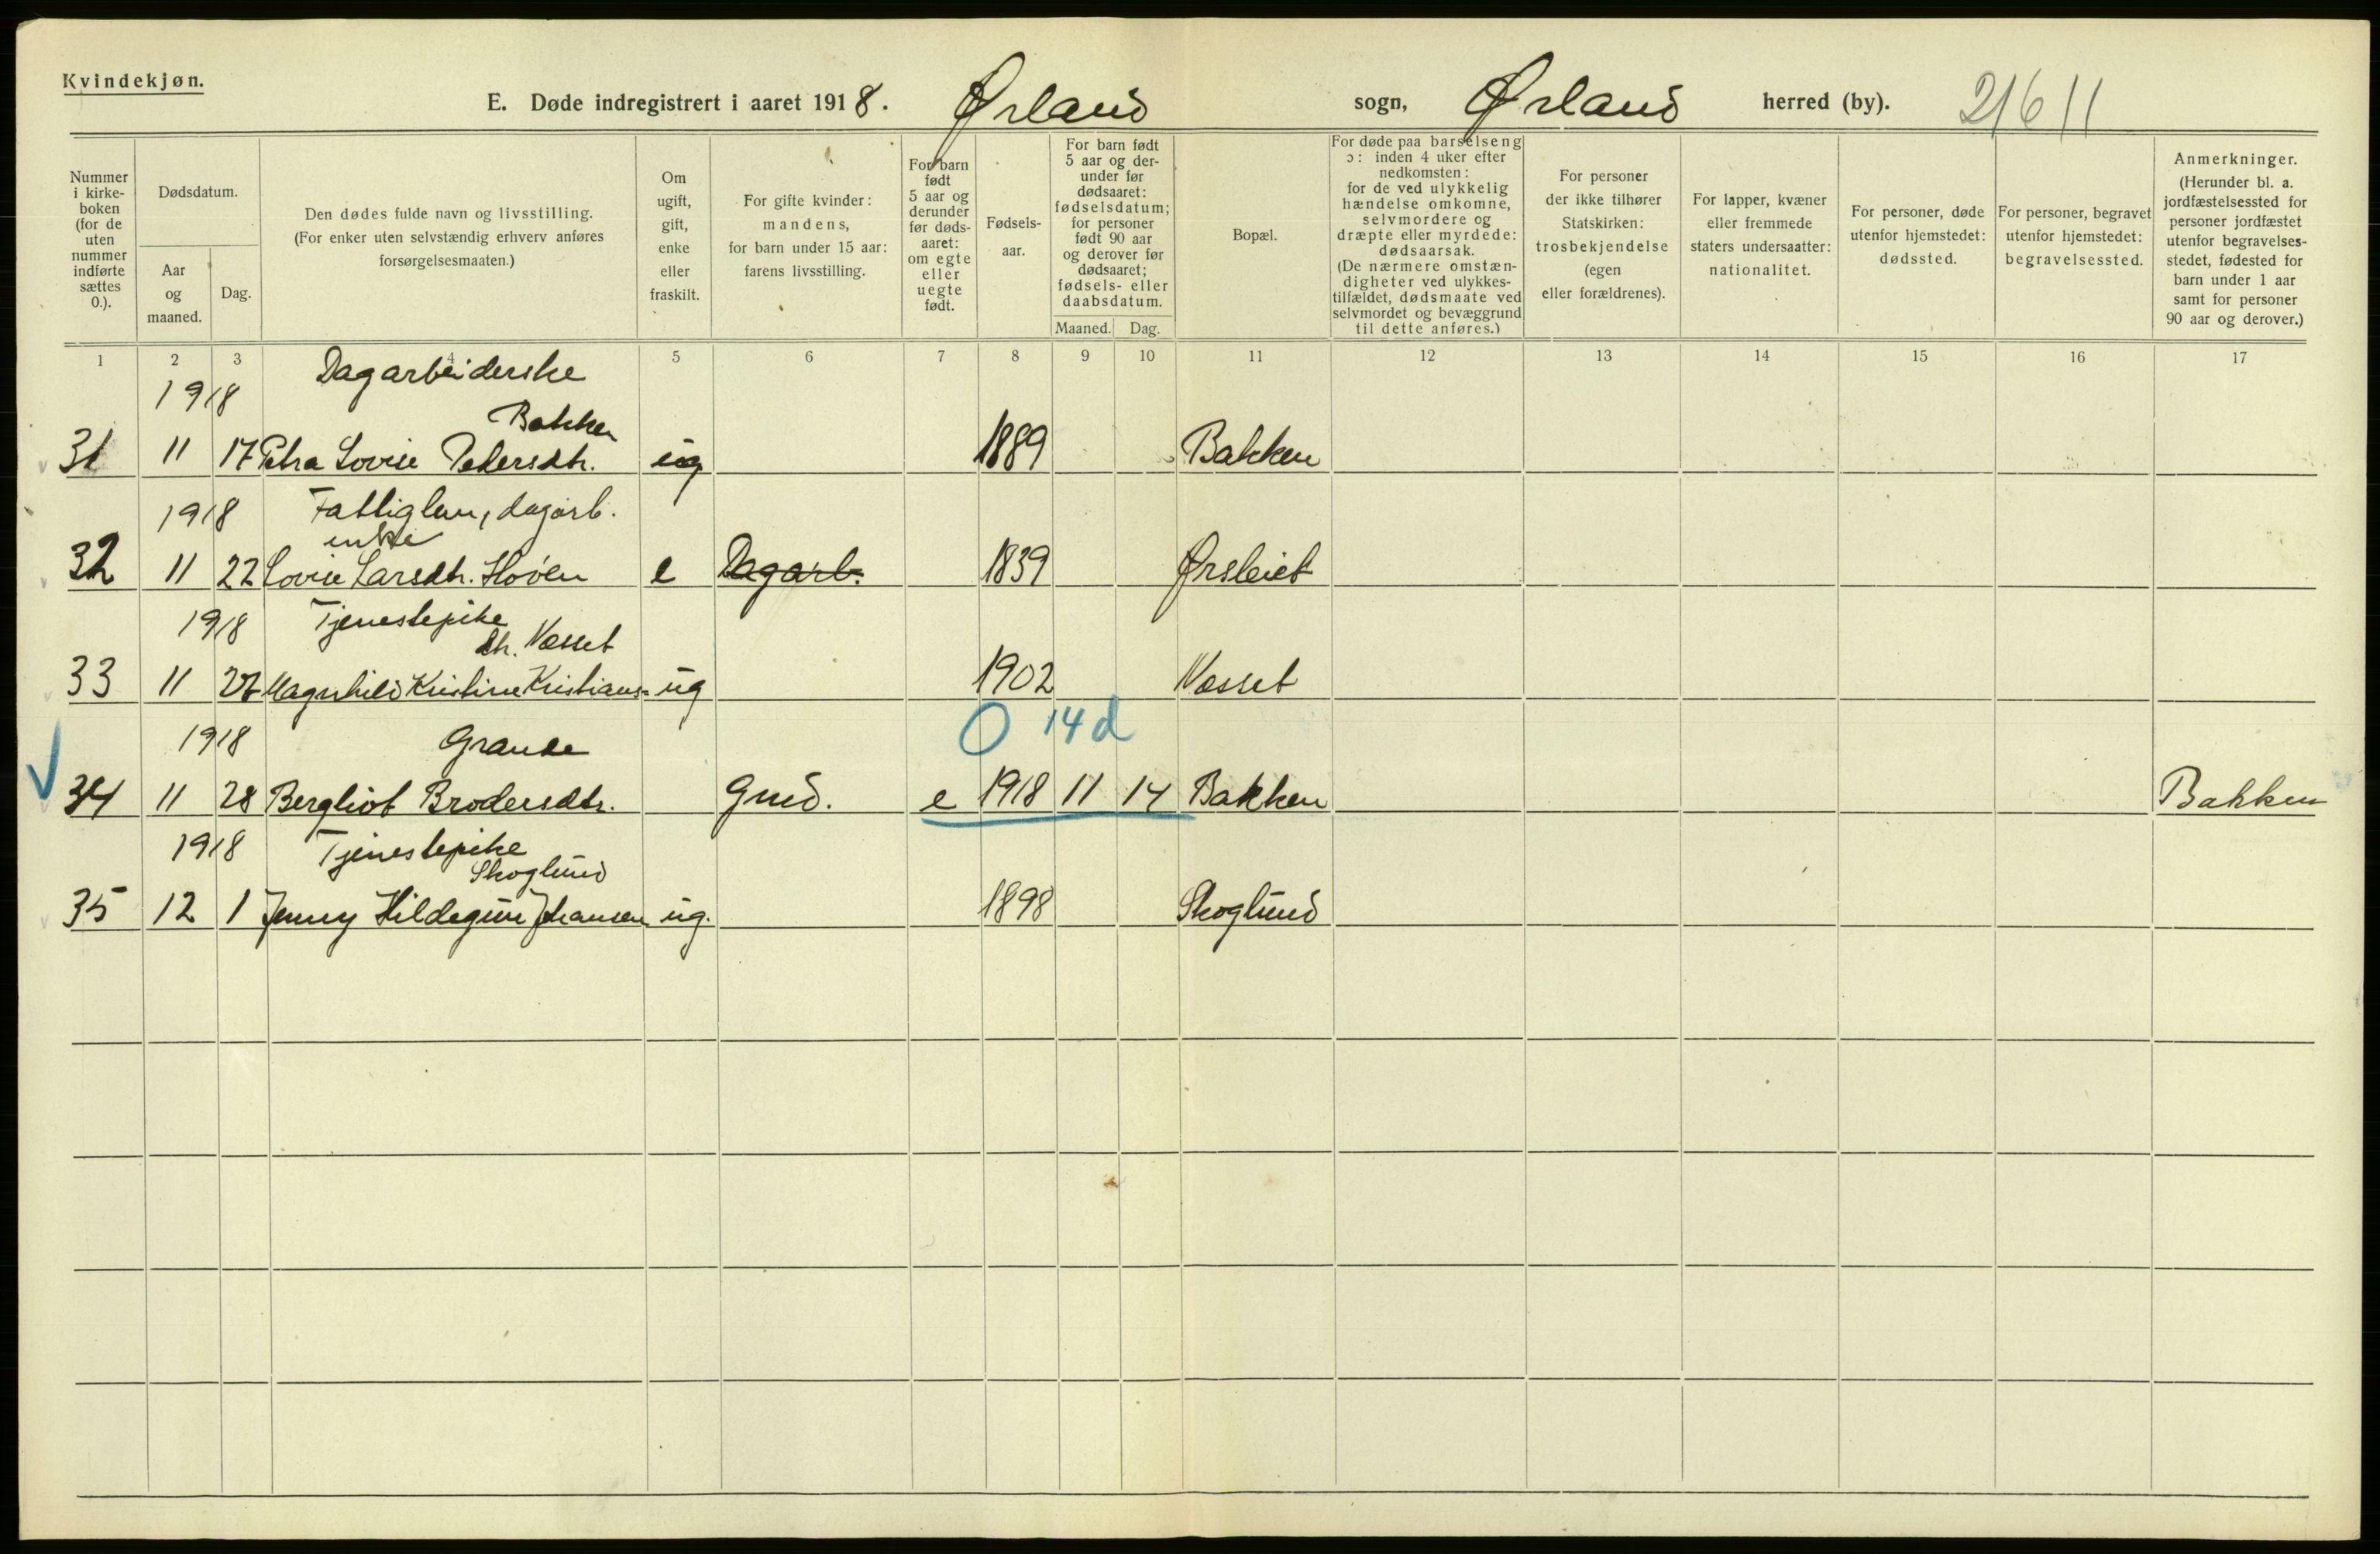 Kvindekjøn.
E. Døde indregistrert i aaret 1918. Ørland sogn, Ørland herred (by). 21611
Nummer i kirkeboken (for de uten nummer indførte sættes 0.).
Dødsdatum.
Aar og maaned.
Dag.
Den dødes fulde navn og livsstilling.
(For enker uten selvstændig erhverv anføres forsørgelsesmaaten.)
Om ugift, gift, enke eller fraskilt.
For gifte kvinder: mandens, for barn under 15 aar: farens livsstilling.
For barn født 5 aar og derunder før dødsaaret: om egte eller uegte født.
Fødselsaar.
For barn født 5 aar og derunder før dødsaaret: fødselsdatum; for personer født 90 aar og derover før dødsaaret; fødsels- eller daabsdatum.
Maaned. Dag.
Bopæl.
For døde paa barselseng ɔ: inden 4 uker efter nedkomsten: for de ved ulykkelig hændelse omkomne, selvmordere og dræpte eller myrdede: dødsaarsak.
(De nærmere omstændigheter ved ulykkestilfældet, dødsmaate ved selvmordet og bevæggrund til dette anføres.)
For personer der ikke tilhører Statskirken: trosbekjendelse (egen eller forældrenes).
For lapper, kvæner eller fremmede staters undersaatter: nationalitet.
For personer, døde utenfor hjemstedet: dødssted.
For personer, begravet utenfor hjemstedet: begravelsessted.
Anmerkninger.
(Herunder bl. a. jordfæstelsessted for personer jordfæstet utenfor begravelsesstedet, fødested for barn under 1 aar samt for personer 90 aar og derover.)
1 2 3 4 5 6 7 8 9 10 11 12 13 14 15 16 17
1918 Dagarbeiderske
Bakken
31 11 17 Petra Lovise Pedersdtr. ug 1889 Bakken
1918 Fattiglem, dagarb.
enke
32 11 22 Lovise Larsdtr. Hoven e Dagarb. 1839 Ørsleiet
1918 Tjenestepike
dtr. Næsset
33 11 27 Magnhild Kristine Kristians- ug 1902 Næsset
0 14 d
1918 Grande
34 11 28 Bergliot Brodersdtr. Gmd. e 1918 11 14 Bakken Bakken
1918 Tjenestepike
Skoglund
35 12 1 Jenny Hildegun Johansen ug. 1898 Skoglund